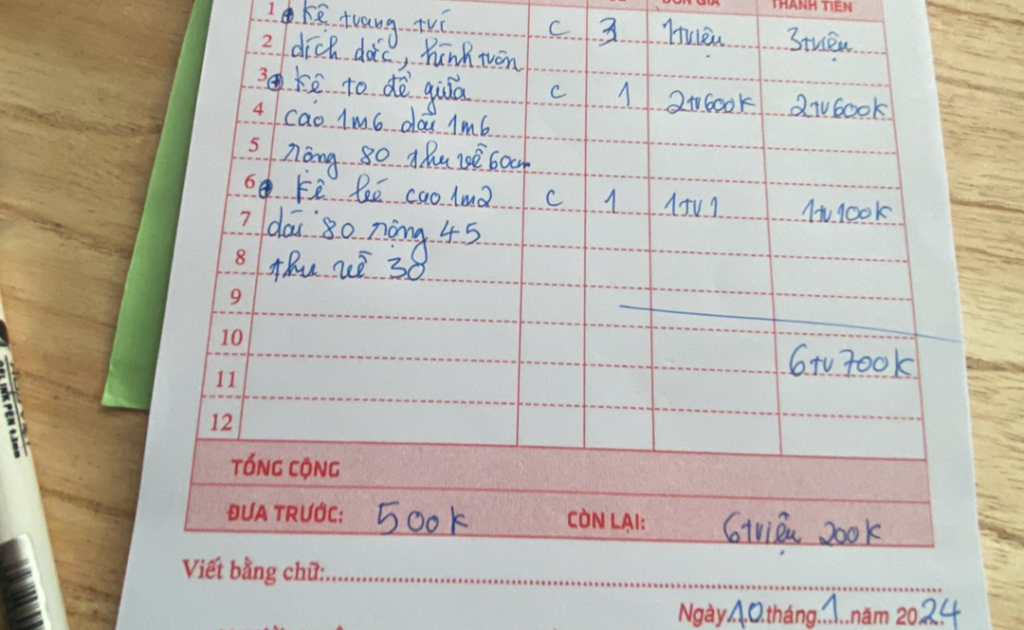 ĐƠN GIÁ THÀNH TIỀN
1 Kệ trang trí C 3 1triệu 3triệu
2 dích dắc, hình tròn
3 Kệ to để giữa C 1 2tr600k 2tr600k
4 cao 1m6 dài 1m6
5 rộng 80 thu về 60cm
6 Kệ bé cao 1m2 C 1 1tr1 1tr100k
7 dài 80 rộng 45
8 thu về 30
9
10 6tr700k
11
12
TỔNG CỘNG
ĐƯA TRƯỚC: 500k CÒN LẠI: 6triệu 200k
Viết bằng chữ:
Ngày 10 tháng 1 năm 2024